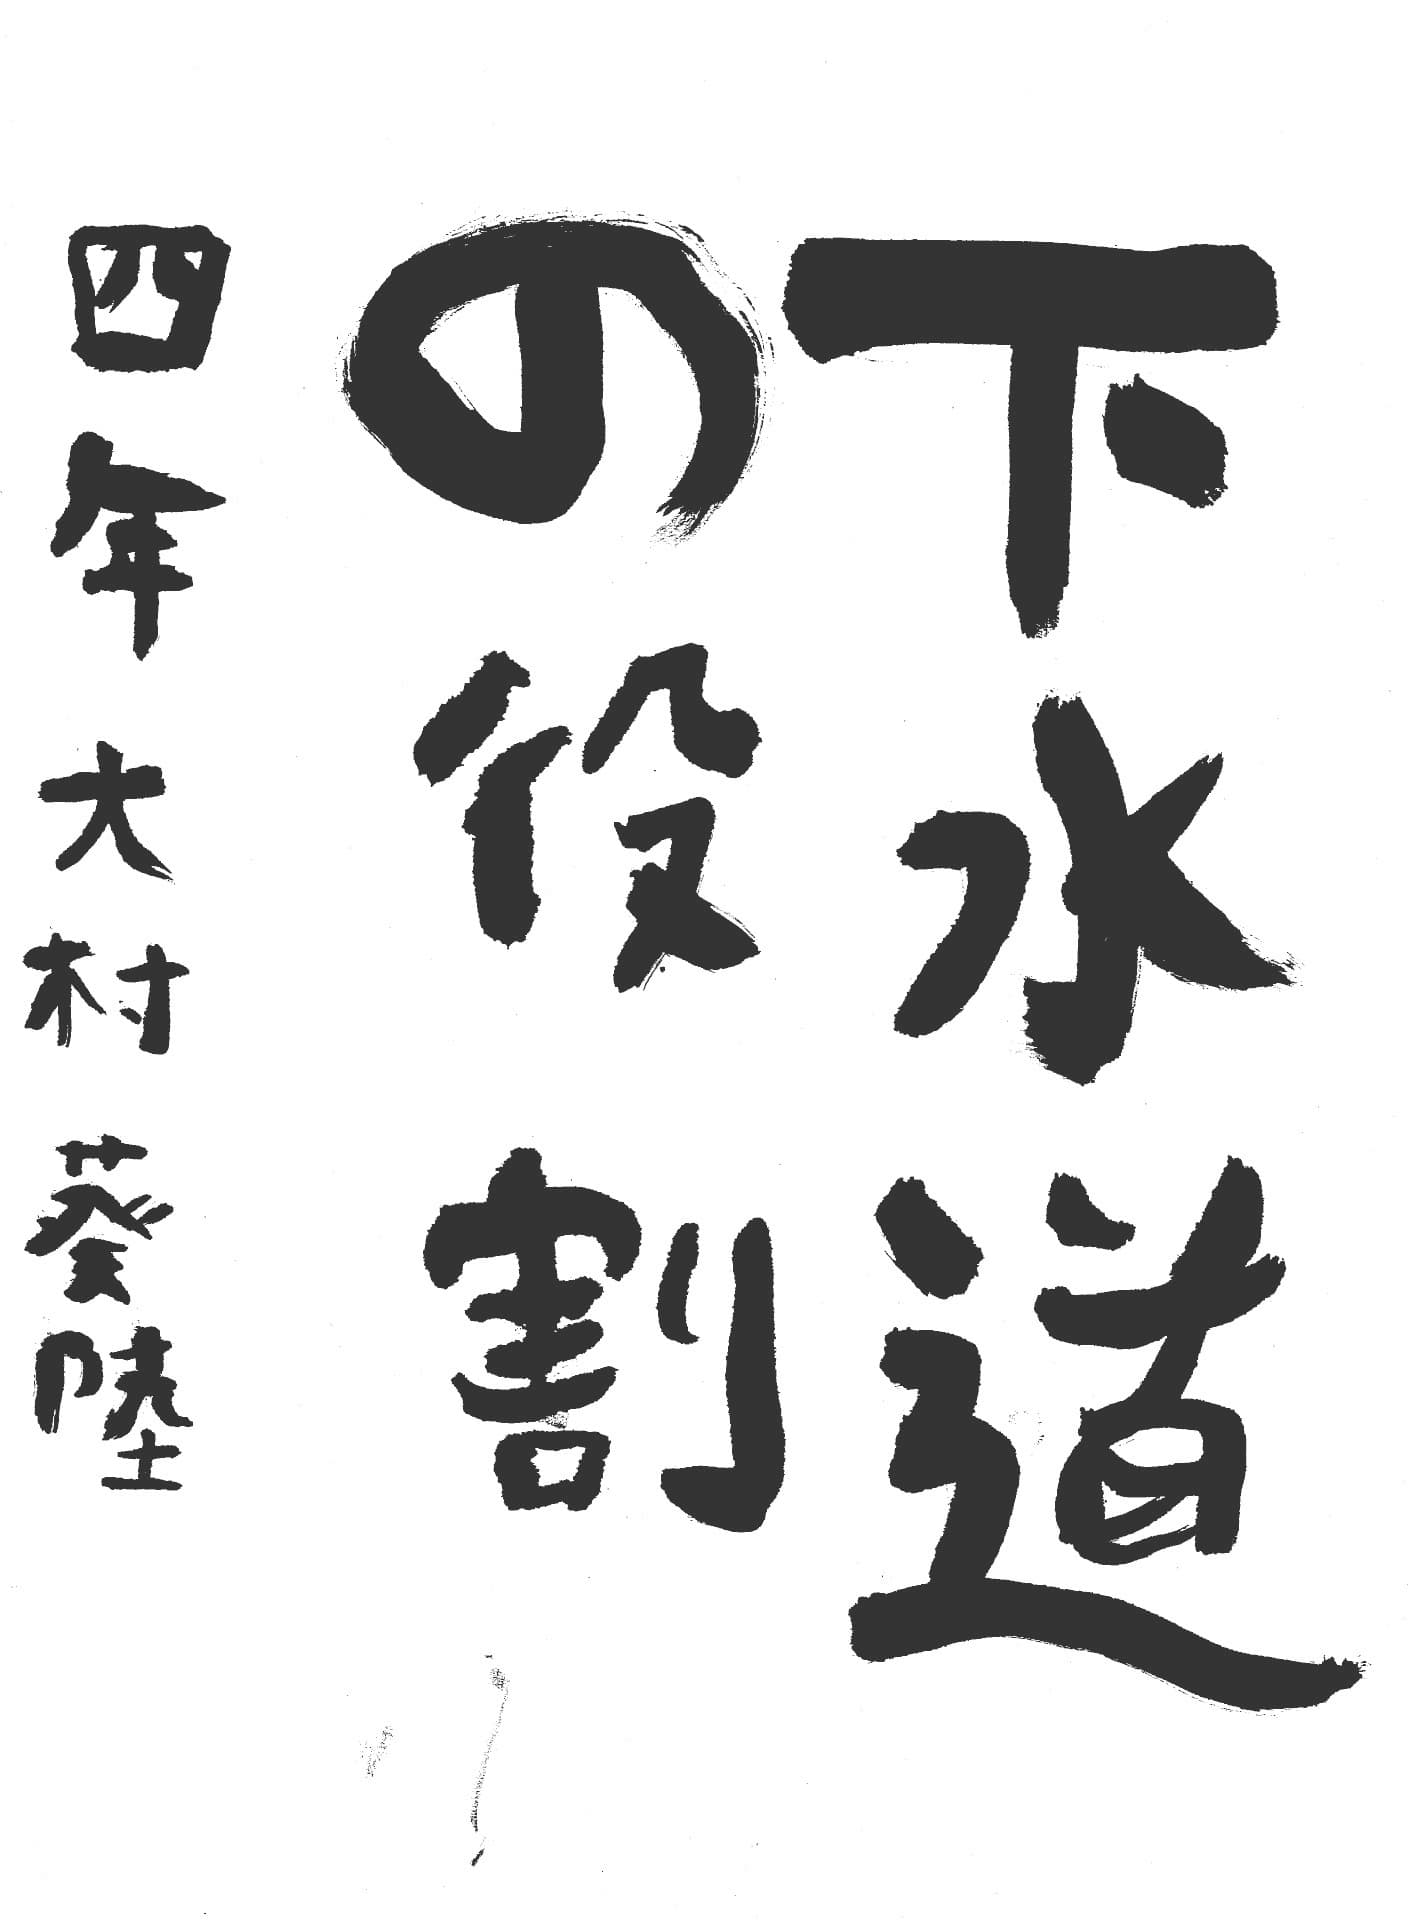 下水道
の役割
四年 大村 葵陸